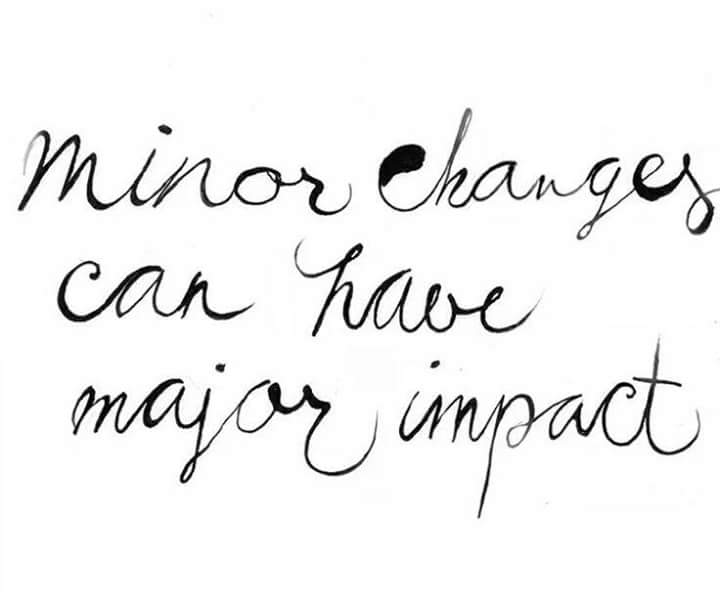 minor changes
can have
major impact